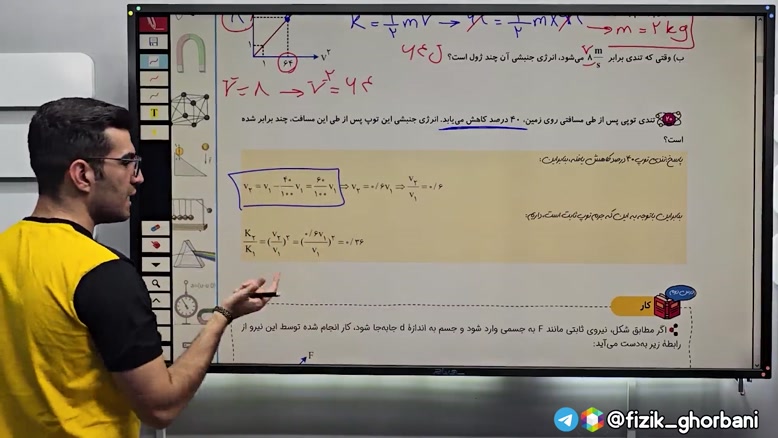 K = ۱/۲ mv → ۶۴ = ۱/۲ m × ۶۴ → m = ۲ kg
v²
۱
۱
۶۴
ب) وقتی که تندی برابر ۸ m/s می‌شود، انرژی جنبشی آن چند ژول است؟
۶۴ J
V = ۸ → V² = ۶۴
۲۰ تندی توپی پس از طی مسافتی روی زمین، ۴۰ درصد کاهش می‌یابد. انرژی جنبشی این توپ پس از طی این مسافت، چند برابر شده
است؟
پاسخ: تندی توپ ۴۰ درصد کاهش یافته، بنابراین:
v₂ = v₁ − ۴۰/۱۰۰ v₁ = ۶۰/۱۰۰ v₁ ⇒ v₂ = ۰/۶v₁ ⇒ v₂/v₁ = ۰/۶
بنابراین باتوجه به این که جرم توپ ثابت است، داریم:
K₂/K₁ = (v₂/v₁)² = (۰/۶v₁/v₁)² = ۰/۳۶
کار
اگر مطابق شکل، نیروی ثابتی مانند F به جسمی وارد شود و جسم به اندازهٔ d جابه‌جا شود، کار انجام شده توسط این نیرو از
رابطهٔ زیر به‌دست می‌آید:
F
@fizik_ghorbani